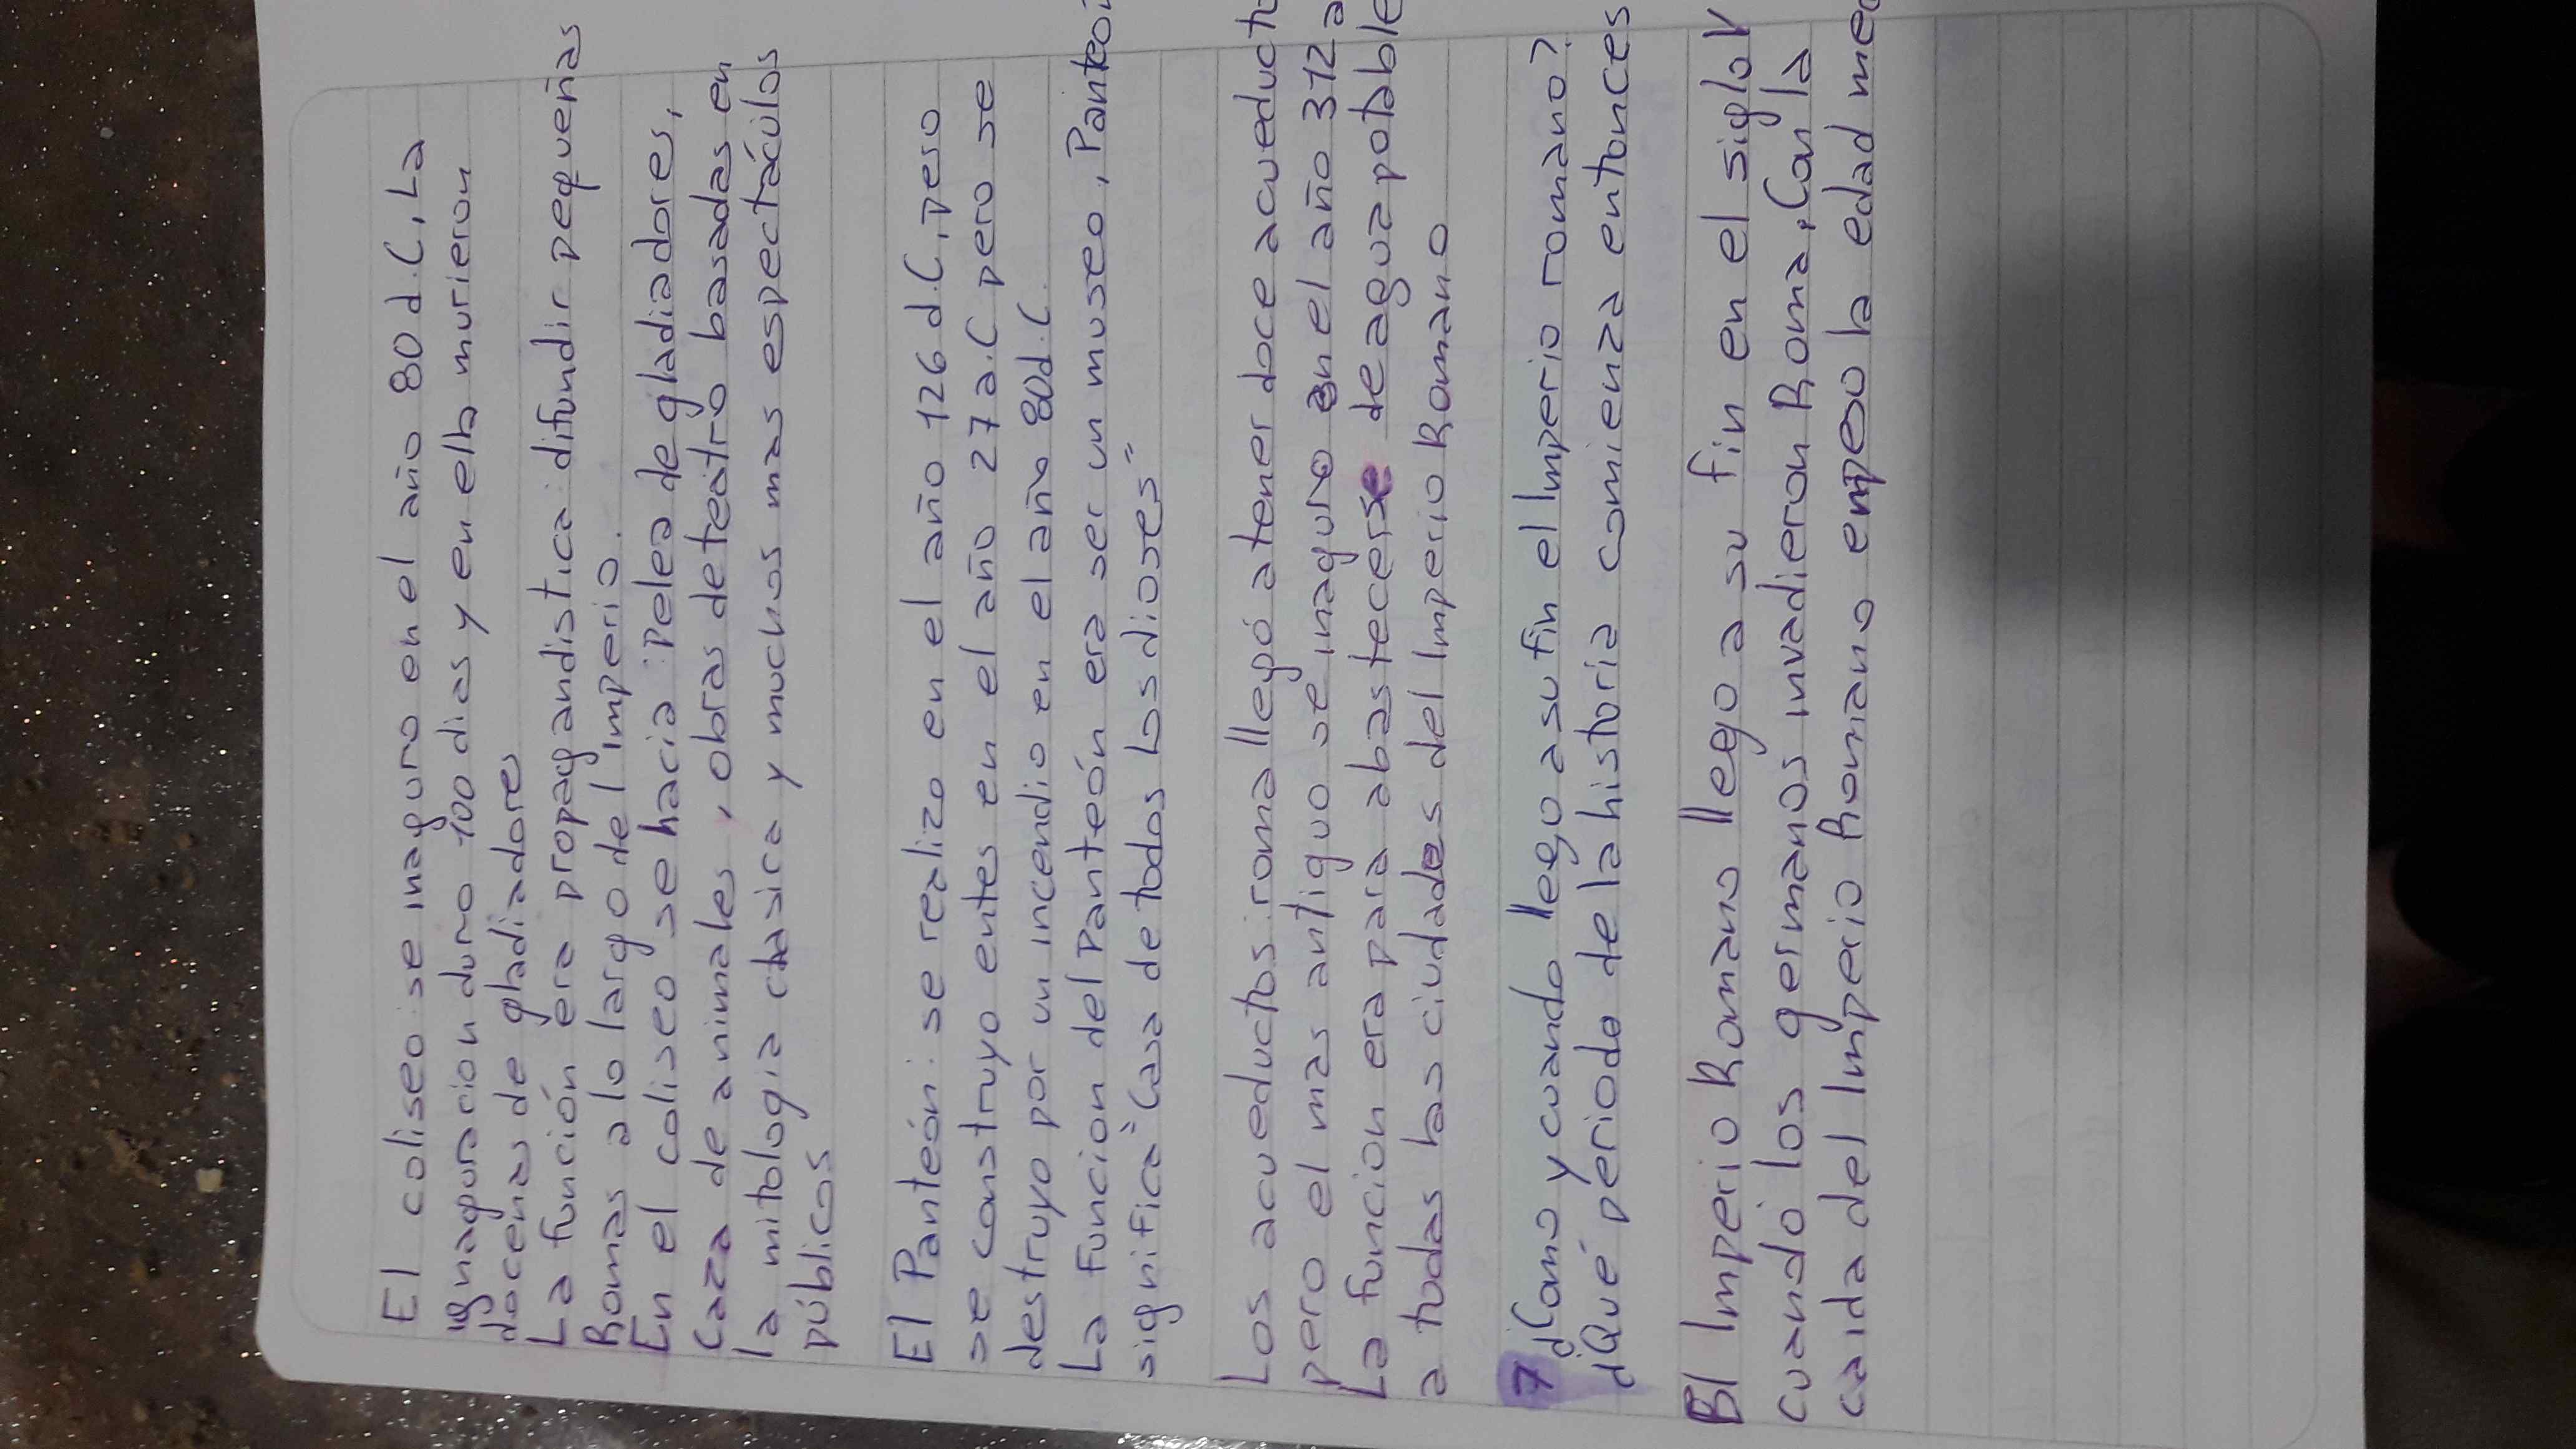 El coliseo: se inaguro en el año 80 d.C, La
ignaguracion duro 100 dias y en ella murieron
docenas de gladiadores
La función era propagandistica: difundir pequeñas
Romas a lo largo del Imperio.
En el coliseo se hacia: Pelea de gladiadores,
Caza de animales, obras de teatro basadas en
la mitologia clasica y muchos mas espectáculos
públicos
El Panteón: se realizo en el año 126 d.C, peso
se construyo entes en el año 27 a.C pero se
destruyo por un incendio en el año 80d.C.
La funcion del Panteón era ser un museo, Panteón
significa "Casa de todos los dioses"
Los acueductos: roma llegó a tener doce acueducto
pero el mas antiguo se inaguro en el año 312 a
La funcion era para abastecerse de agua potable
a todas las ciudades del Imperio Romano
7 ¿Como y cuando llego a su fin el Imperio romano?
¿Qué periodo de la historia comienza entonces
El Imperio Romano llego a su fin en el siglo V
cuando los germanos invadieron Roma, Con la
caida del Imperio Romano empeso la edad med